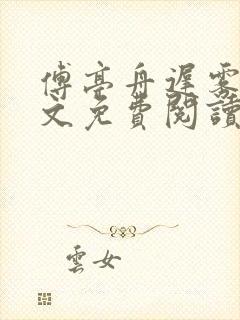 傅亭舟遲霧
文免費閱讀
雲女